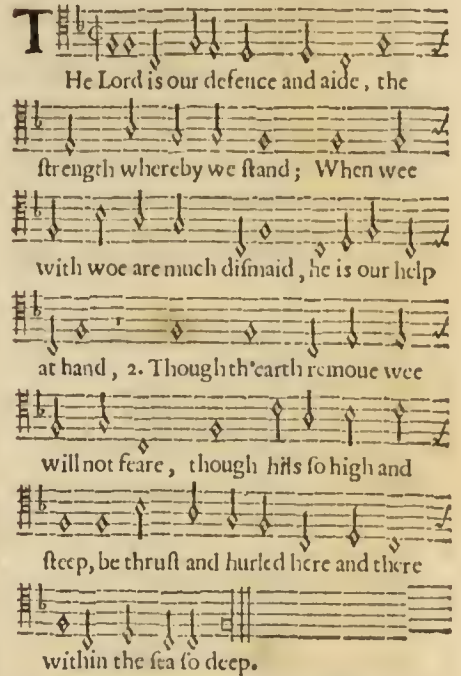 THe Lord is our defence and aide, the
ſtrength whereby we ſtand; When wee
with woe are much diſmaid, he is our help
at hand, 2. Though th'earth remoue wee
will not feare, though hils ſo high and
ſteep, be thruſt and hurled here and there
within the ſea ſo deep.